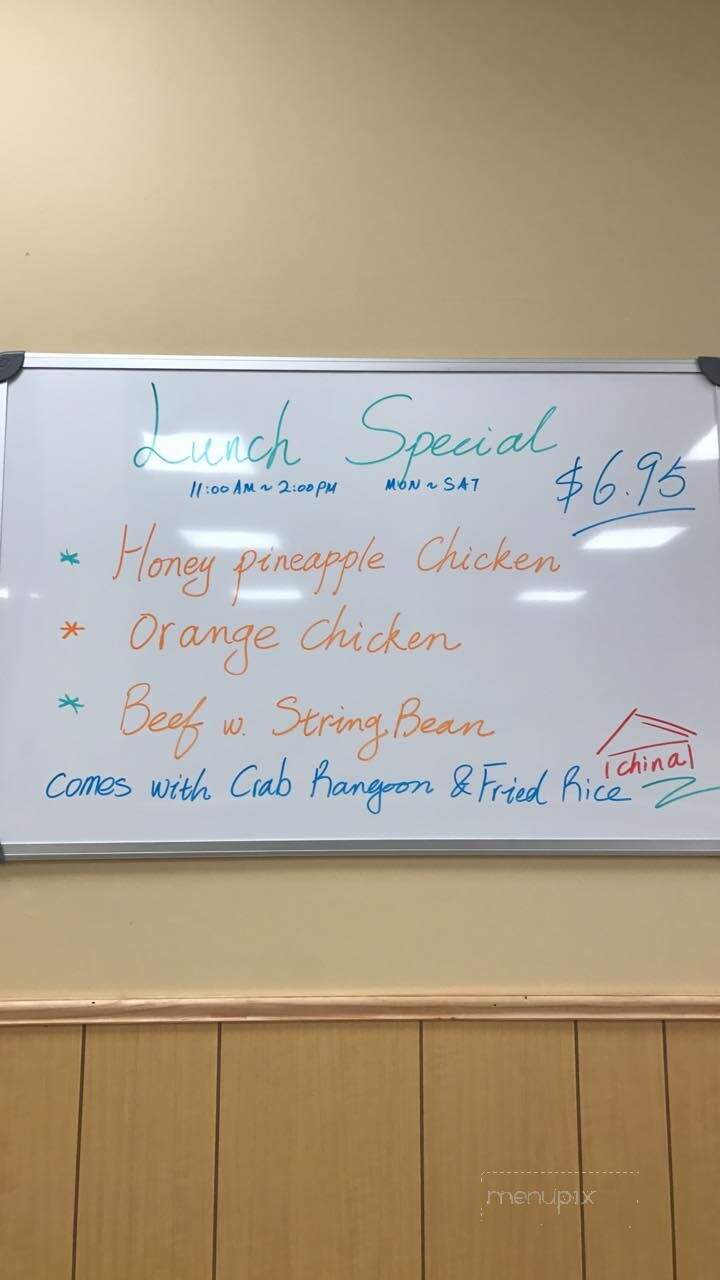 Lunch Special
11:00 AM ~ 2:00 PM MON ~ SAT
$6.95
* Honey pineapple Chicken
* Orange Chicken
* Beef w. String Bean
china
comes with Crab Rangoon & Fried Rice
menupix